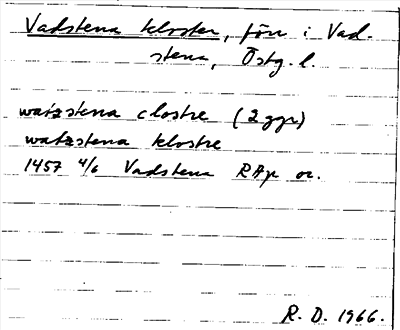 Vadstena kloster, förr i Vad-
stena, Östg. l.
watzstena clostre (2 ggr)
watzstena klostre
1457 4/6 Vadstena RAp or.
R. D. 1966.